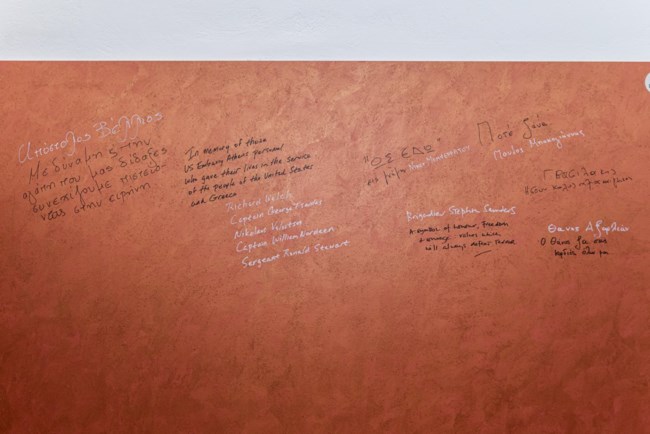 Απόστολος Βέλλιος
Με δύναμη & την
αγάπη που μας δίδαξες
συνεχίζουμε
νέας στην ειρήνη
In memory of those
US Embassy Athens personnel
who gave their lives in the service
of the people of the United States
and Greece
Richard Welch
Captain George Tsantes
Nikolaos Veloutsos
Captain William Nordeen
Sergeant Ronald Stewart
"ΩΣ ΕΔΩ"
στη μνήμη
Ποτέ ξανά
Παύλος Μπακογιάννης
Brigadier Stephen Saunders
A symbol of honour, freedom
values which
will always
Θάνος Αξαρλιάν
Ο Θάνος ζει στις
καρδιές όλων μας